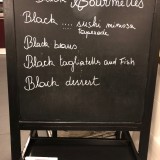 Black Gourmettes
Black .... sushi mimosa
tapenade
Black beans
Black tagliatelles and Fish
Black dessert